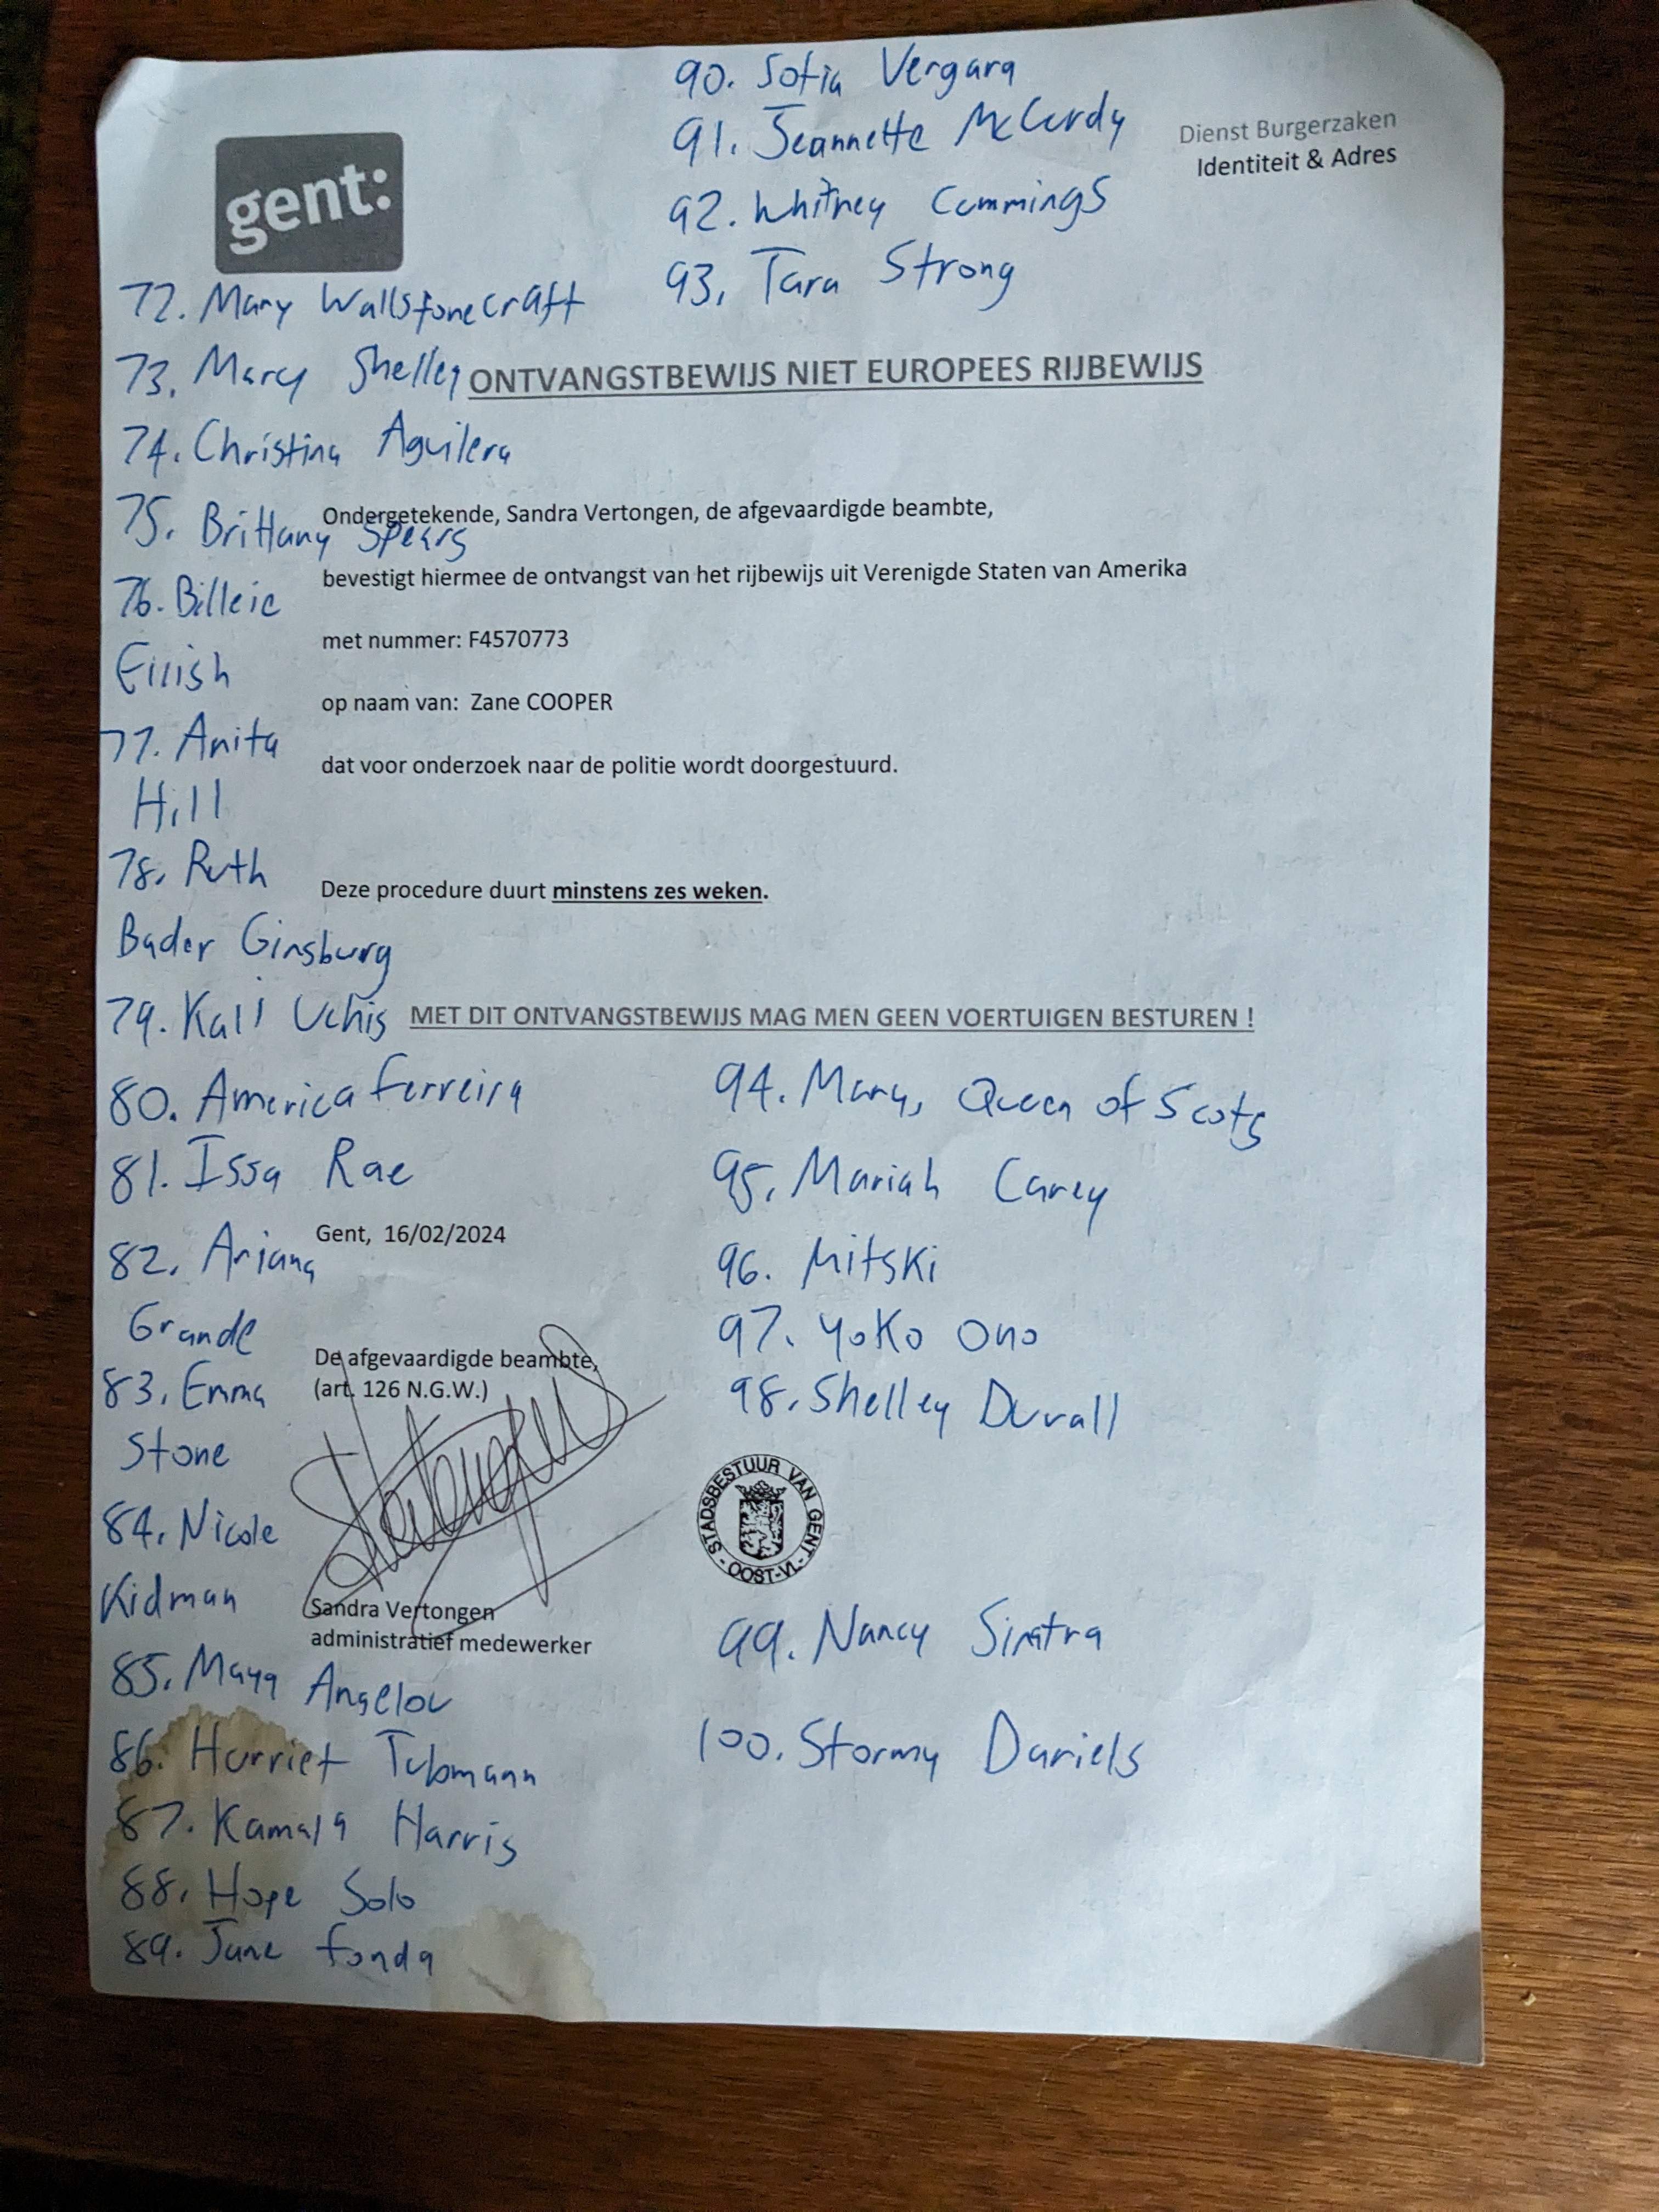 90. Sofia Vergara
91. Jeannette McCurdy
92. Whitney Cummings
93. Tara Strong
Dienst Burgerzaken
Identiteit & Adres
gent:
72. Mary Wallstonecraft
73. Mary Shelley
ONTVANGSTBEWIJS NIET EUROPEES RIJBEWIJS
74. Christina Aguilera
75. Brittany Spears
Ondergetekende, Sandra Vertongen, de afgevaardigde beambte,
bevestigt hiermee de ontvangst van het rijbewijs uit Verenigde Staten van Amerika
76. Billeie
Eilish
met nummer: F4570773
op naam van: Zane COOPER
77. Anita
Hill
dat voor onderzoek naar de politie wordt doorgestuurd.
78. Ruth
Bader Ginsburg
Deze procedure duurt minstens zes weken.
79. Kali Uchis
MET DIT ONTVANGSTBEWIJS MAG MEN GEEN VOERTUIGEN BESTUREN !
80. America Ferreira
81. Issa Rae
82. Ariana
Grande
Gent, 16/02/2024
83. Emma
Stone
De afgevaardigde beambte,
(art. 126 N.G.W.)
84. Nicole
Kidman
Sandra Vertongen
administratief medewerker
85. Maya Angelou
86. Harriet Tubmann
87. Kamala Harris
88. Hope Solo
89. Jane Fonda
94. Mary, Queen of Scots
95. Mariah Carey
96. Mitski
97. Yoko Ono
98. Shelley Duvall
STADSBESTUUR VAN GENT - OOST-VL. -
99. Nancy Sinatra
100. Stormy Daniels